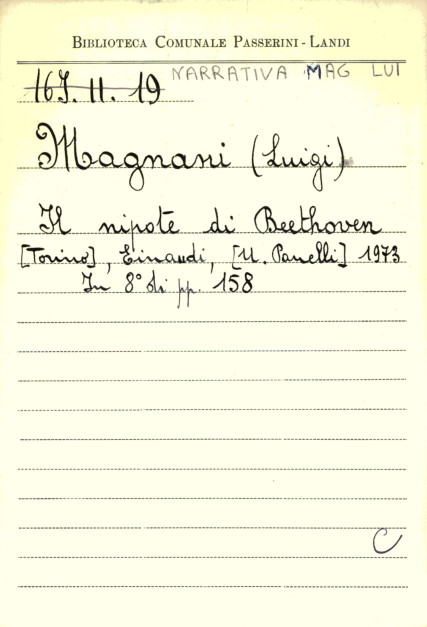 BIBLIOTECA COMUNALE PASSERINI - LANDI
NARRATIVA MAG LUI
16J. 11. 19
Magnani (Luigi)
Il nipote di Beethoven
[Torino], Einaudi, [U. Panelli] 1973
In 8° di pp. 158
C